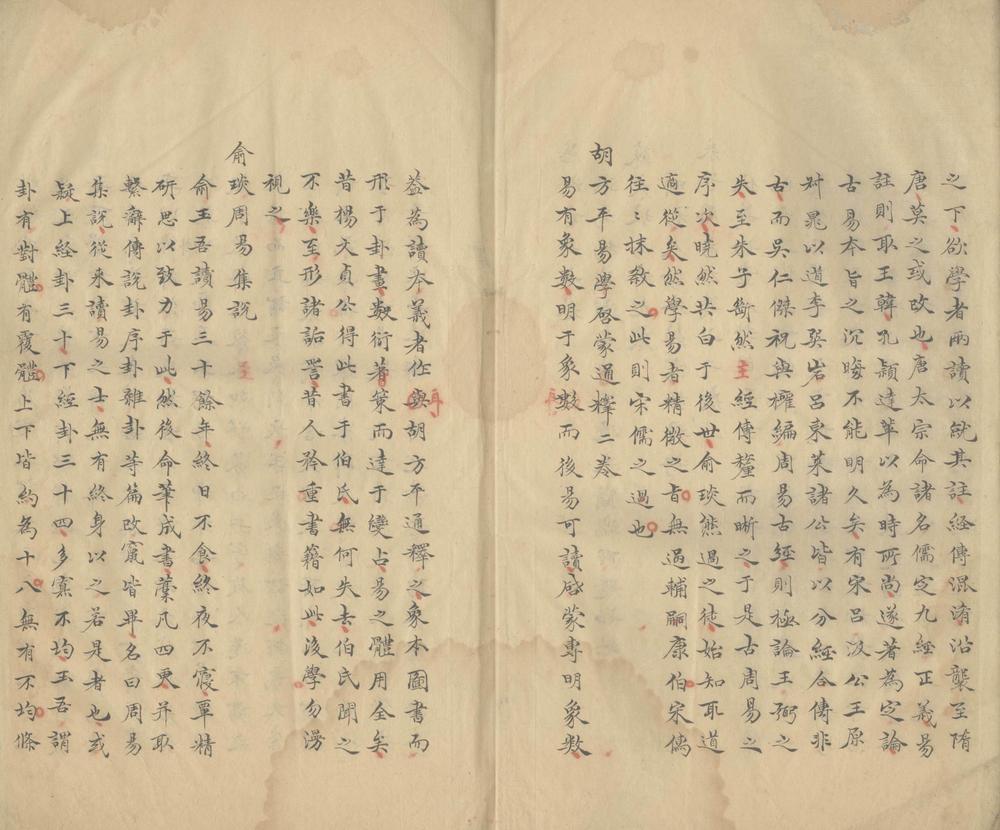 之下欲學者兩讀以就其註經傳混淆沿襲至隋
唐莫之或改也唐太宗命諸名儒定九經正義易
註則取王韓孔穎達輩以為時所尚遂著為定論
古易本旨之沉晦不能明久矣有宋呂汲公王原
叔晁以道李巽岩呂東萊諸公皆以分經合傳非
古而吳仁傑祝與權編周易古經則極論王弼之
失至朱子斷然主經傳釐而晰之于是古周易之
序次曉然共白于後世俞琰熊過之徒始知取道
適從矣然學易者精微之旨無過輔嗣康伯宋儒
往〻抹殺之此則宋儒之過也
胡方平易學啓蒙通釋二卷
易有象數明于象數而後易可讀啓蒙專明象數
益為讀本義者作與胡方平通釋之象本圖書而
形于卦畫數衍蓍策而達于變占易之體用全矣
昔楊文貞公得此書于伯氏無何失去伯氏聞之
不樂至形諸詬詈昔人矜重書籍如此後學勿漫
視之
俞琰周易集說
俞玉吾讀易三十餘年終日不食終夜不寢覃精
研思以致力于此然後命筆成書藁凡四更并取
繫辭傳說卦序卦雜卦等篇改竄皆畢名曰周易
集說從來讀易之士無有終身以之若是者也或
疑上經卦三十下經卦三十四多寡不均玉吾謂
卦有對體有覆體上下皆約為十八無有不均條